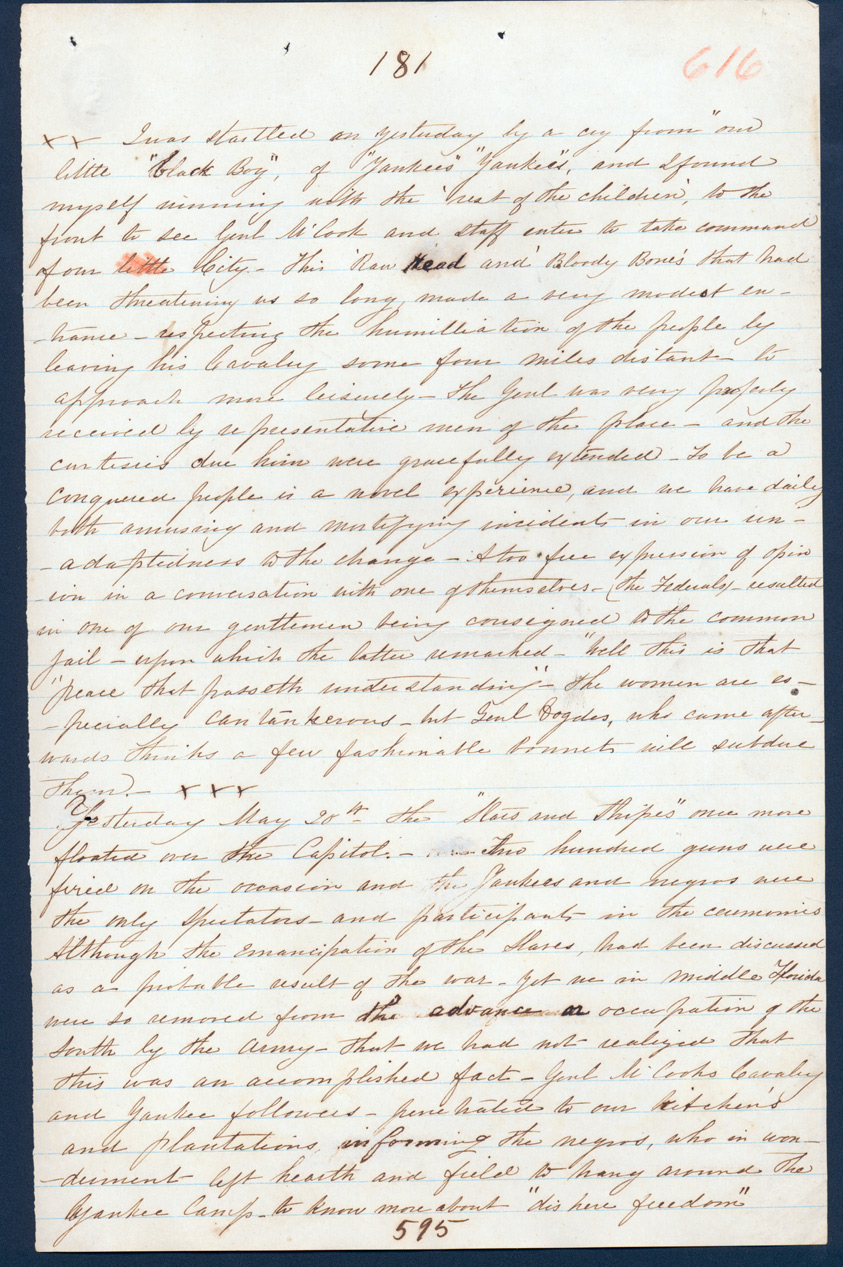 181
616
xx I was startled on yesterday by a cry from "our
little "black Boy", of "Yankees" "Yankees", and I found
myself running with the 'rest of the children', to the
front to see Genl McCook and staff enter to take command
of our little City - This 'Raw Head and' Bloody Bones that had
been threatening us so long, made a very modest en-
-trance - respecting the humilliation of the people by
leaving his Cavalry some four miles distant - to
approach more leisurely - The Genl was very properly
received by representative men of the place - and the
curtisies due him were gracefully extended - To be a
conquered people is a novel experience, and we have daily
both amusing and mortifying incidents in our un-
-adaptedness to the change - A too free expression of opin
-ion in a conversation with one of themselves - (the Federals) - resulted
in one of our gentlemen being consigned to the common
jail - upon which the latter remarked - "Well this is that
"peace that passeth understanding" - The women are es-
-pecially cantankerous - but Genl Vogdes, who came after-
wards thinks a few fashionable bonnets will subdue
them. - xxx
Yesterday May 20th the "Stars and Stripes" once more
floated over the Capitol. - Two hundred guns were
fired on the occasion and the Yankees and negros were
the only spectators - and participants in the ceremonies
Although the emancipation of the Slaves, had been discussed
as a probable result of the war - yet we in middle Florida
were so removed from the advance or occupation of the
South by the army - that we had not realized that
this was an accomplished fact - Genl McCooks Cavalry
and Yankee followers - penetrated to our kitchen's
and plantations, informing the negros, who in won-
-derment left hearth and field to hang around the
Yankee Camp - to know more about "dis here freedom"
595